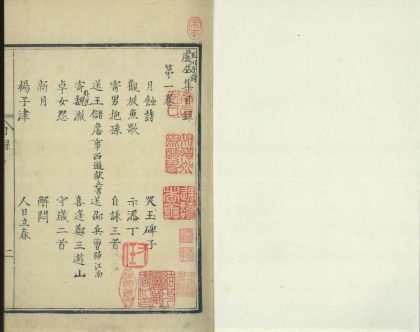 盧仝集目錄
第一卷
月蝕詩　哭玉碑子
觀放魚歌　示添丁
寄男抱孫　自詠三首
送王儲詹事西遊獻兵書　送邵兵曹歸江南
寄外兄魏澈　喜逢鄭三遊山
卓女怨　守歲二首
新月　解悶
楊子津　人日立春
二